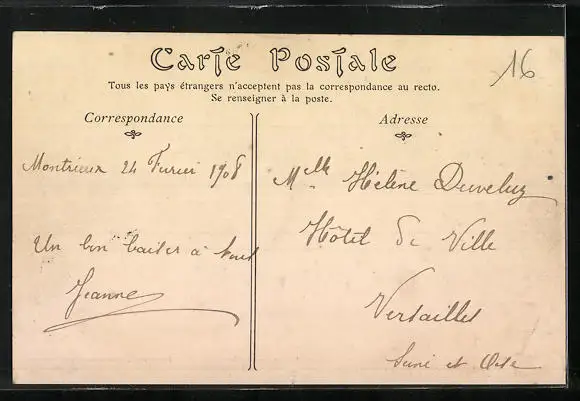 Carte Postale
16
Tous les pays étrangers n'acceptent pas la correspondance au recto.
Se renseigner à la poste.
Correspondance
Montrieux 24 Fevrier 1908
Un bon baiser à tous
Jeanne
Adresse
Melle Hélène
Hôtel de Ville
Versailles
Seine et Oise